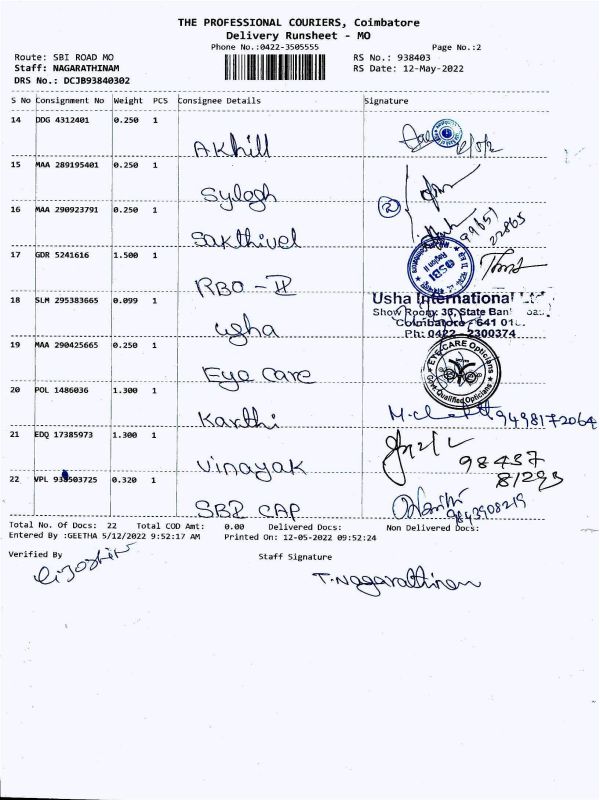 THE PROFESSIONAL COURIERS, Coimbatore
Delivery Runsheet - MO
Phone No.:0422-3505555 Page No.:2
Route: SBI ROAD MO RS No.: 938403
Staff: NAGARATHINAM RS Date: 12-May-2022
DRS No.: DCJB93840302
S No Consignment No Weight PCS Consignee Details Signature
14 DDG 4312401 0.250 1
AKhill
15 MAA 289195401 0.250 1
Sylogh
16 MAA 290923791 0.250 1
Sakthivel
99651
22865
17 GDR 5241616 1.500 1
RBO - II
SBI
18 SLM 295383665 0.099 1
Usha International
Show Room: 33, State Bank
Coimbatore - 641 018.
Ph: 0422 - 2300374
usha
19 MAA 290425665 0.250 1
EYE CARE Opticians
Govt. Qualified Opticians
Eye Care
20 POL 1486036 1.300 1
Karthi
9498172064
21 EDQ 17385973 1.300 1
Vinayak
98437
81293
22 VPL 938503725 0.320 1
SBI CAP
9843908219
Total No. Of Docs: 22 Total COD Amt: 0.00 Delivered Docs: Non Delivered Docs:
Entered By :GEETHA 5/12/2022 9:52:17 AM Printed On: 12-05-2022 09:52:24
Verified By Staff Signature
T. Nagarathinam